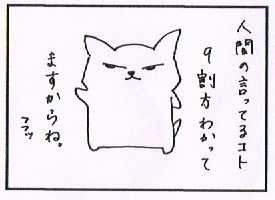 人間の言ってるコト
9割方わかって
ますからね。
フフッ